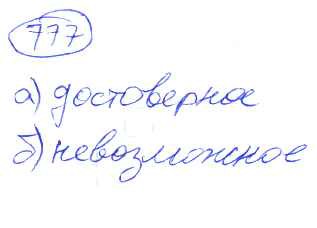 777
а) достоверное
б) невозможное